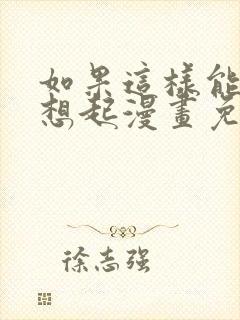 如果這樣能
想起漫畫免
徐志强